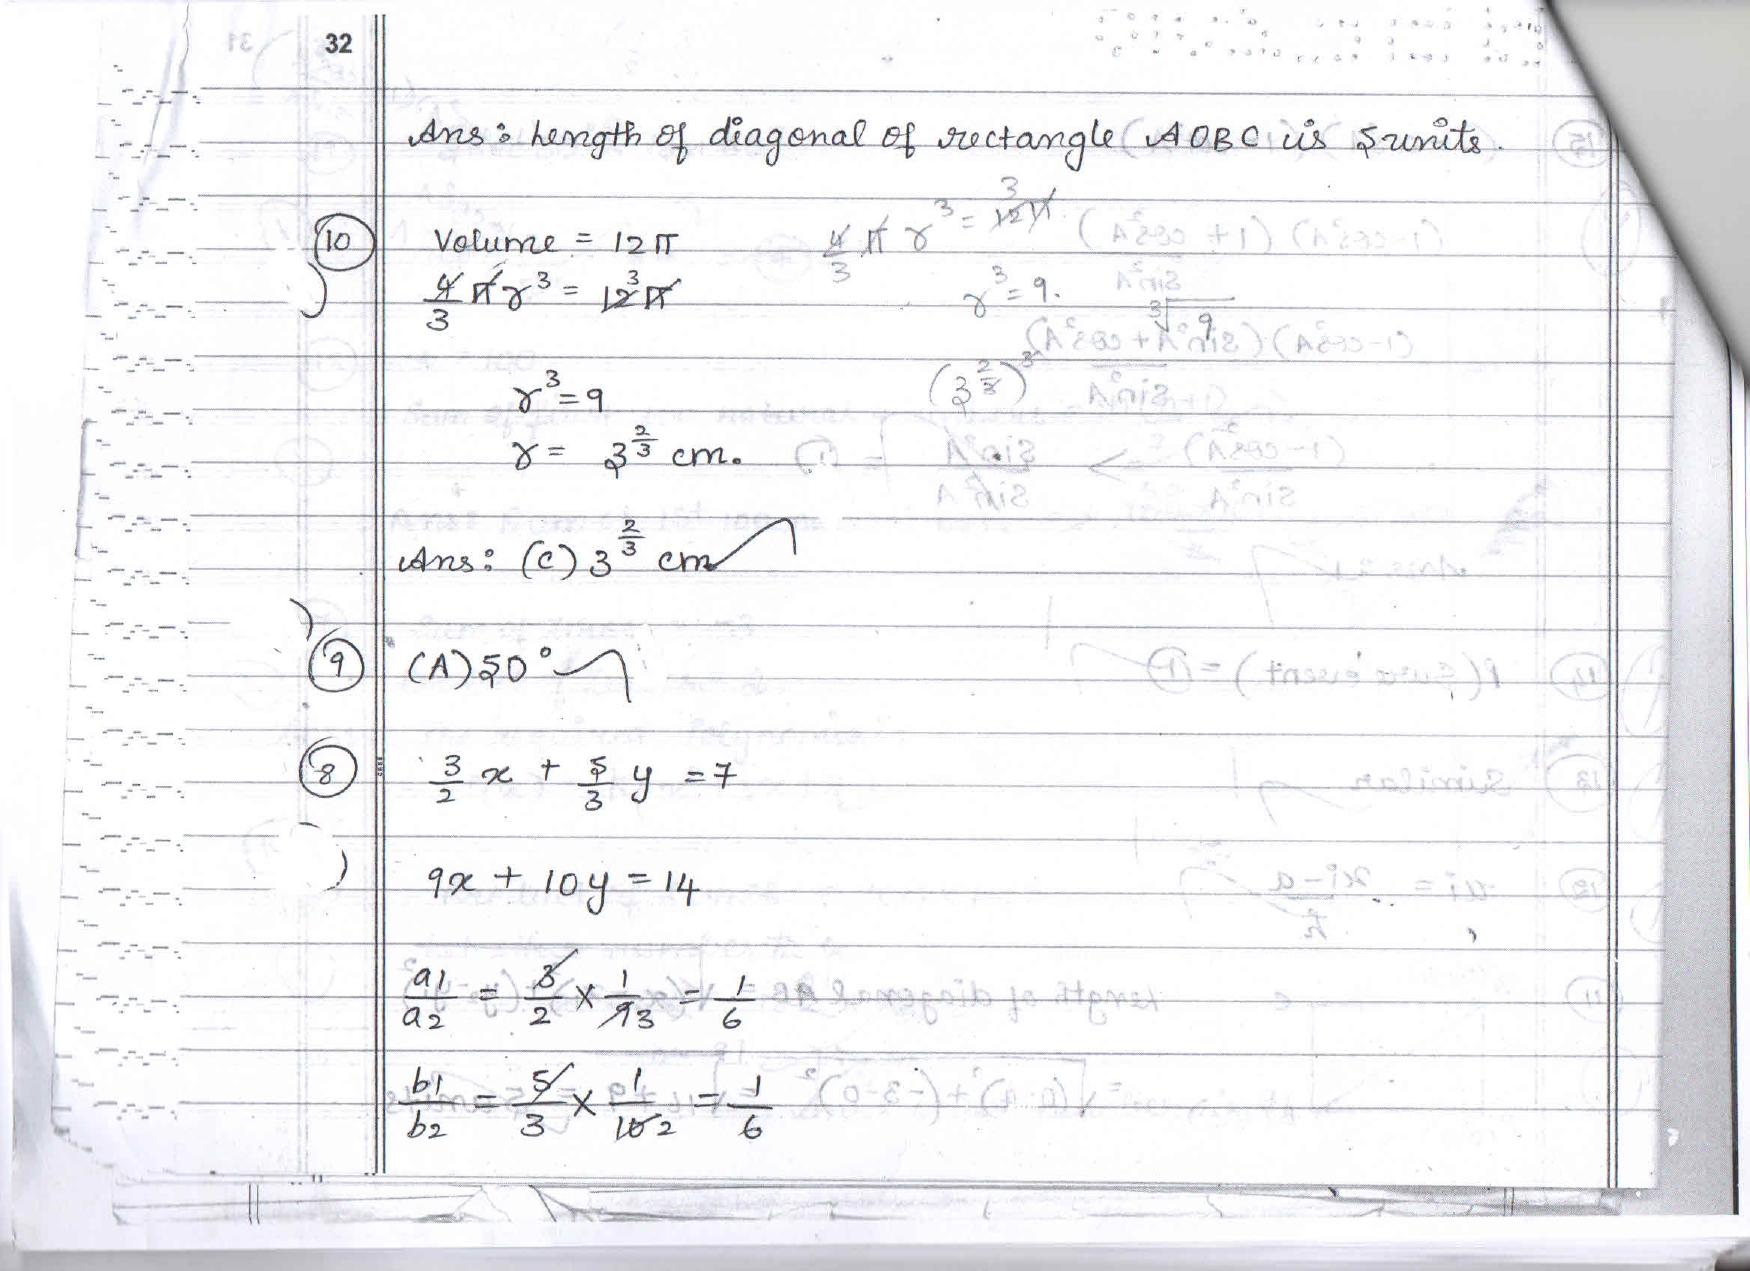 32
Ans: Length of diagonal of rectangle AOBC is 5 units.
10 Volume = 12π
4/3 πr³ = 12 3 π
r³ = 9
r = 3^(2/3) cm.
4/3 π r³ = 12 3 π
r³ = 9.
³√9
(3^(2/3))³
Ans: (C) 3^(2/3) cm
9 (A) 50°
8 3/2 x + 5/3 y = 7
9x + 10y = 14
a1/a2 = 3/2 × 1/9 3 = 1/6
b1/b2 = 5/3 × 1/10 2 = 1/6